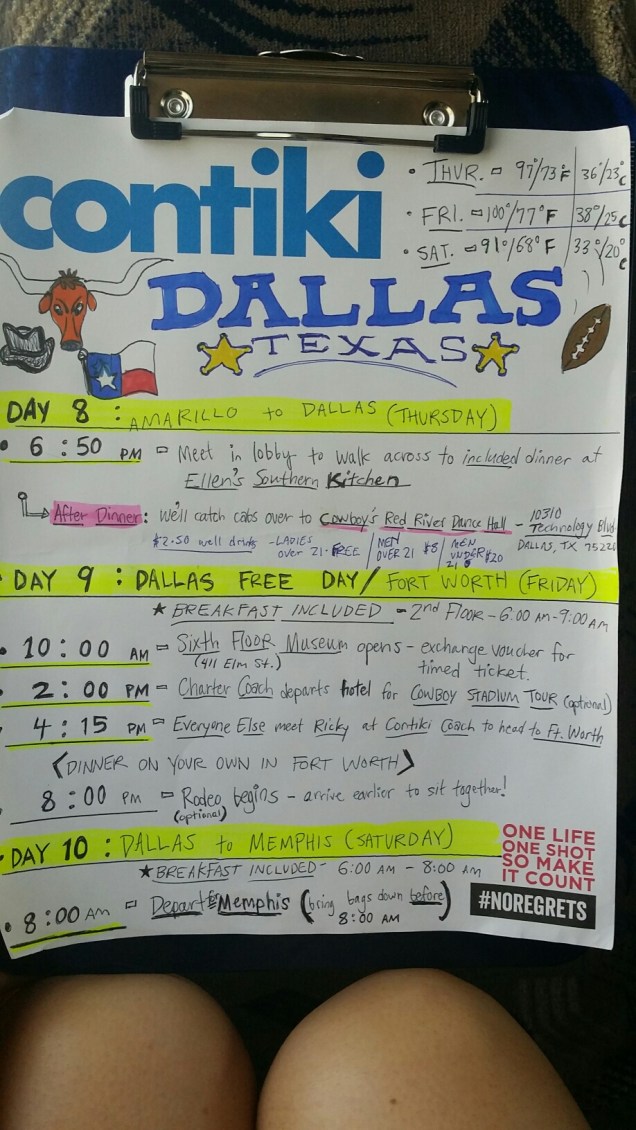 contiki
• THUR. = 97°/73°F 36°/23°C
• FRI. = 100°/77°F 38°/25C
• SAT. = 91°/68°F 33°/20°C
DALLAS
TEXAS
DAY 8 : AMARILLO to DALLAS (THURSDAY)
• 6 : 50 PM = Meet in lobby to walk across to included dinner at
Ellen's Southern Kitchen
After Dinner: we'll catch cabs over to Cowboy's Red River Dance Hall - 10310
Technology Blvd
DALLAS, TX 75220
$2.50 well drinks - LADIES
over 21 - FREE
MEN
OVER 21 $8
MEN
UNDER $20
21
DAY 9 : DALLAS FREE DAY/ FORT WORTH (FRIDAY)
★ BREAKFAST INCLUDED - 2nd FLOOR - 6:00 AM - 9:00AM
• 10 : 00 AM = Sixth Floor Museum opens - exchange voucher for
(411 Elm St.) timed ticket.
• 2 : 00 PM = Charter Coach departs hotel for COWBOY STADIUM TOUR (optional)
4 : 15 PM = Everyone Else meet Ricky at Contiki Coach to head to Ft. Worth
<DINNER ON YOUR OWN IN FORT WORTH>
8 : 00 PM = Rodeo begins - arrive earlier to sit together!
(optional)
DAY 10 : DALLAS to MEMPHIS (SATURDAY)
★ BREAKFAST INCLUDED - 6:00 AM - 8:00 AM
• 8 : 00 AM = Depart Memphis (bring bags down before
8:00 AM)
ONE LIFE
ONE SHOT
SO MAKE
IT COUNT
#NOREGRETS